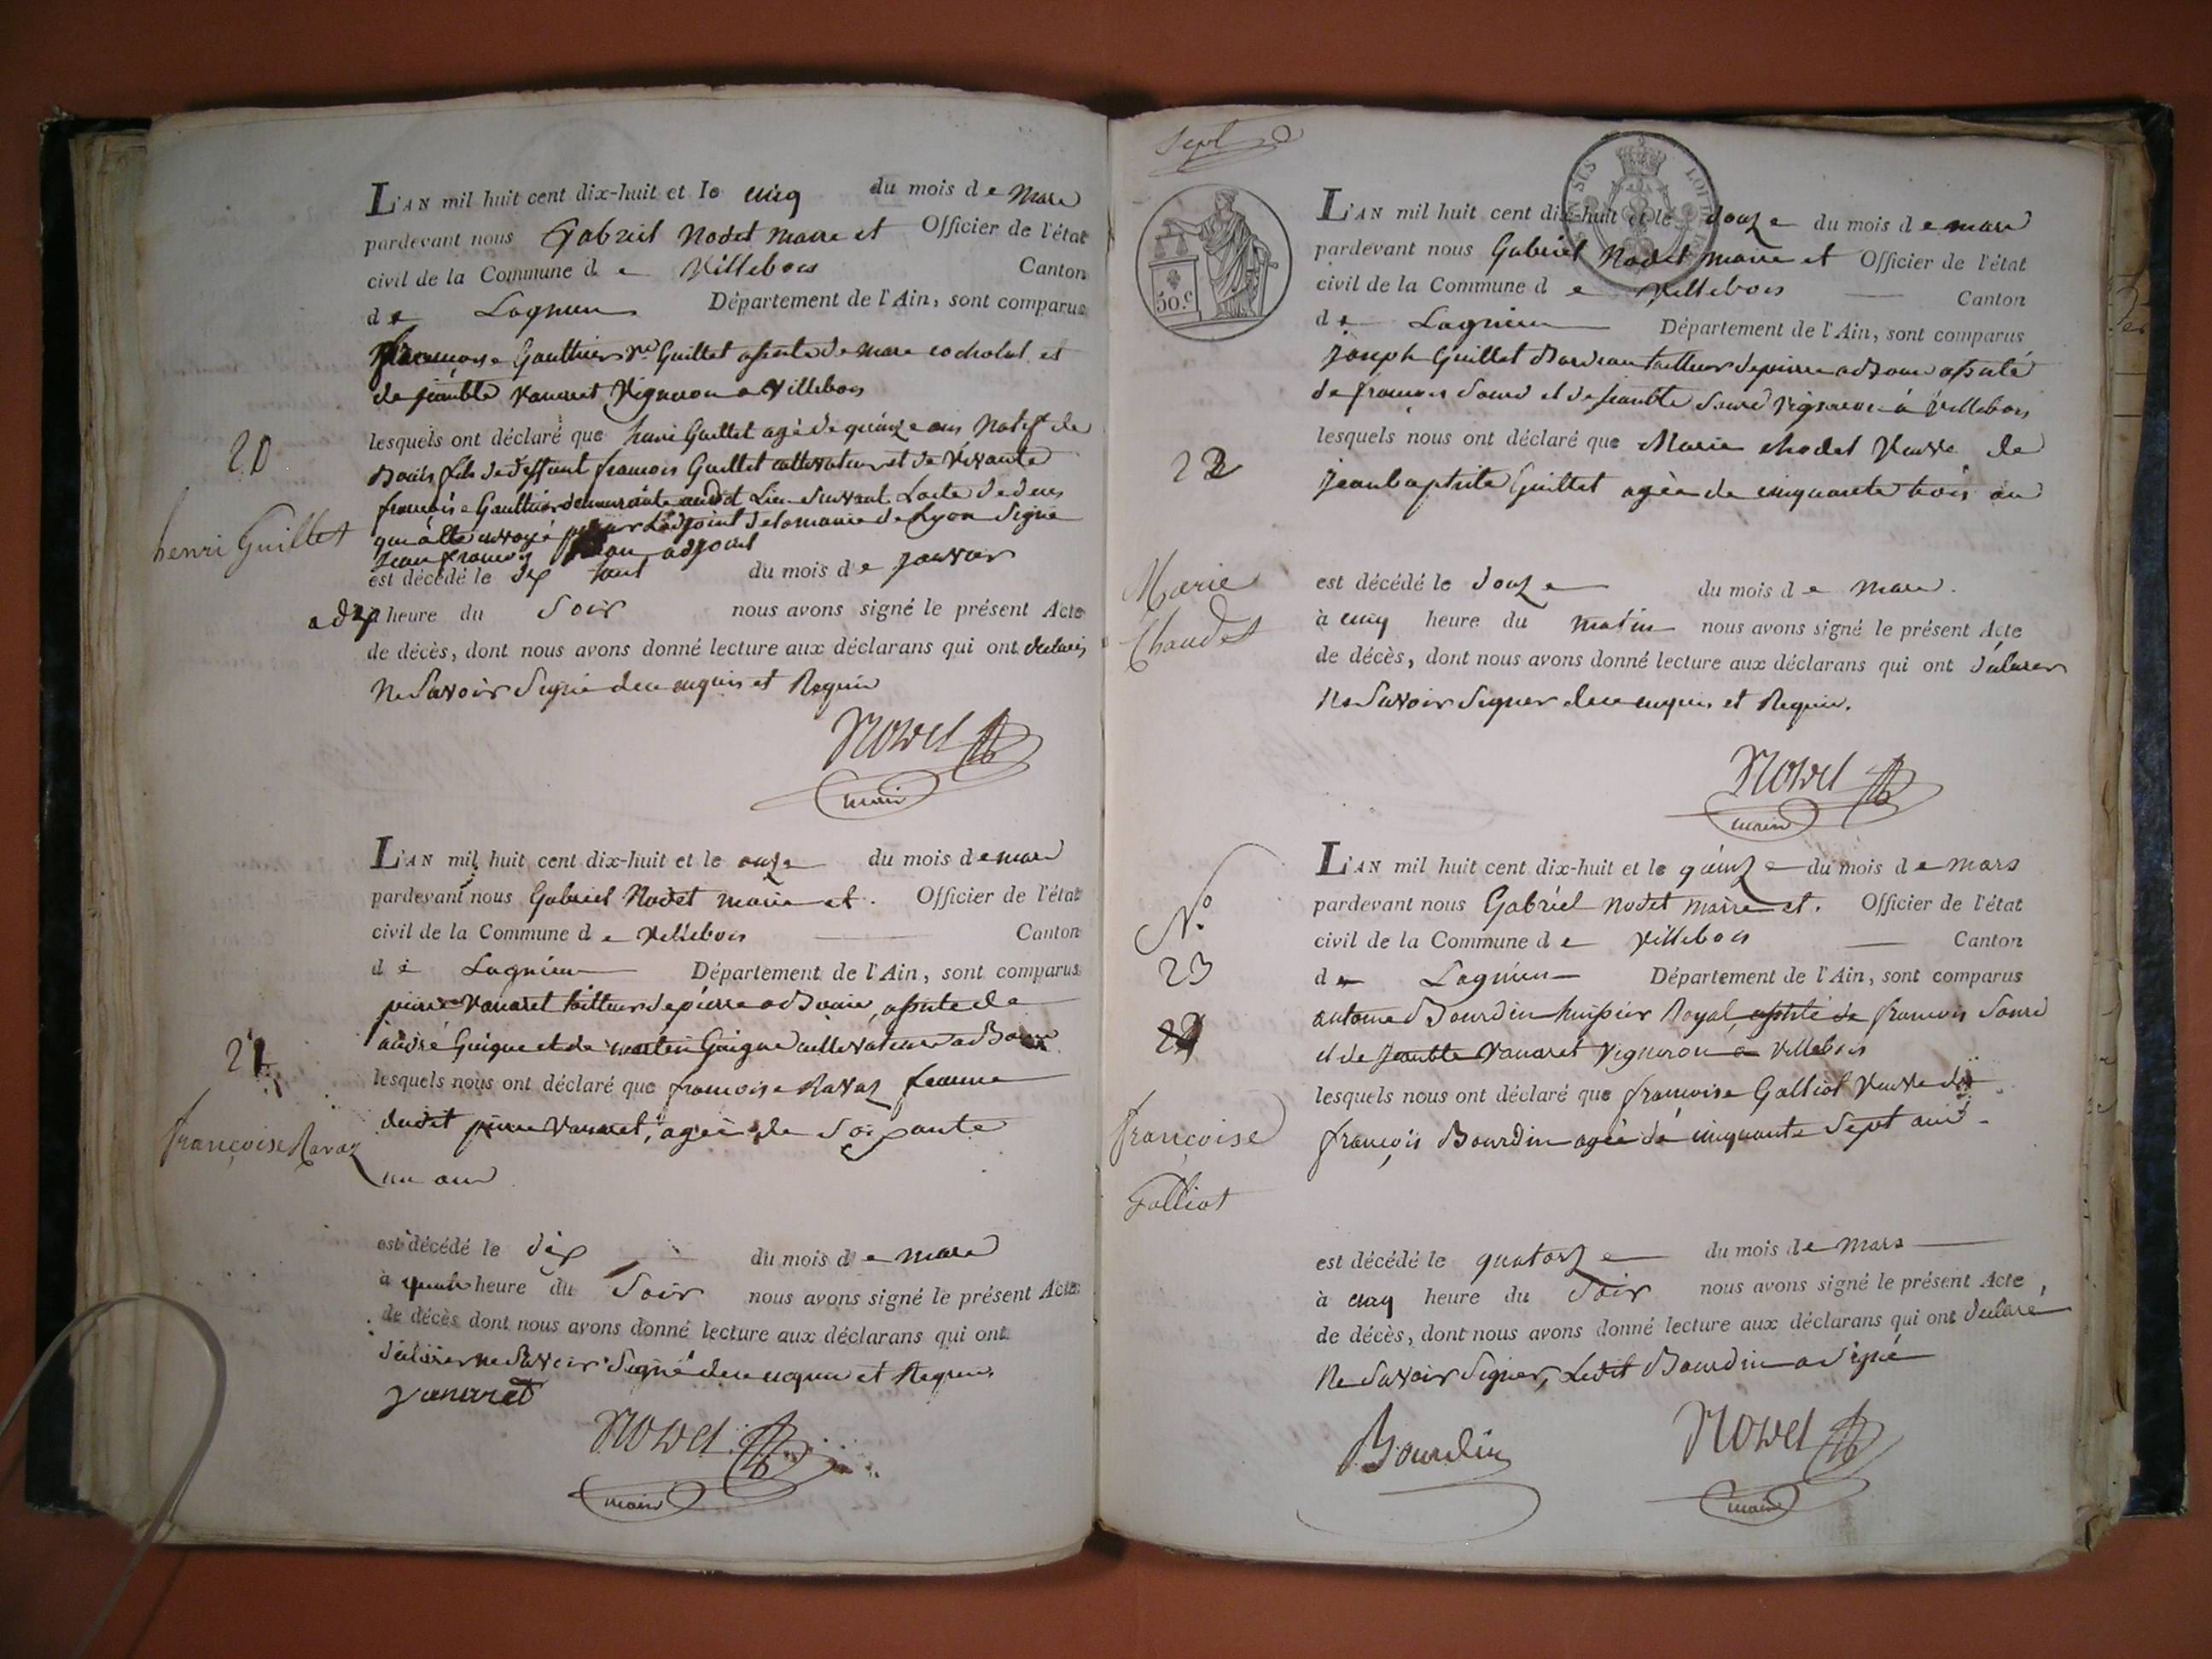 L'AN mil huit cent dix-huit et le cinq du mois de mars
pardevant nous Gabriel Nodet maire et Officier de l'état
civil de la Commune de Villebois Canton
de Lagnieu Département de l'Ain, sont comparus
françoise Gauthier Ve Guillet assisté de marc et
de vanaret Vigneron a Villebois
lesquels ont déclaré que henri Guillet agé de quinze ans, Natif de
Bouis fils de deffunt françois Guillet cultivateur et de vivante
françoise Gauthier demeurante audit Lieu Suivant L'acte de deces
qui a été envoyé par L'adjoint de la mairie de Lyon Signé
Jean françois adjoint
est décédé le dix huit du mois de janvier
a dix heure du Soir nous avons signé le présent Acte
de décès, dont nous avons donné lecture aux déclarans qui ont declarés
Ne Savoir Signé de ce enquis et Requis
Nodet
maire
20
henri Guillet
L'AN mil huit cent dix-huit et le onze du mois de mars
pardevant nous Gabriel Nodet maire et. Officier de l'état
civil de la Commune de Villebois Canton
de Lagnieu Département de l'Ain, sont comparus
pierre Vanaret tailleur de pierre a Bouis, assisté de
andré Guigue et de martin Guigue cultivateurs a Bouis
lesquels nous ont déclaré que francoise Ravaz femme
dudit pierre Vanaret, agée de Soixante
un ans
est décédé le dix du mois de mars
à quatre heure du Soir nous avons signé le présent Acte
de décès dont nous avons donné lecture aux déclarans qui ont
déclarer ne Savoir Signé de ce enquis et Requis.
vanaret
Nodet
maire
21
françoise Ravaz
50.c
L'AN mil huit cent dix-huit et le douze du mois de mars
pardevant nous Gabriel Nodet maire et Officier de l'état
civil de la Commune de Villebois Canton
de Lagnieu Département de l'Ain, sont comparus
joseph Guillet tailleur de pierre assisté
de françois Sourd et de Sourd vigneron à Villebois
lesquels nous ont déclaré que Marie chodet Veuve de
jean baptiste Guillet agée de cinquante trois ans
est décédé le douze du mois de mars.
à cinq heure du matin nous avons signé le présent Acte
de décès, dont nous avons donné lecture aux déclarans qui ont déclarer
Ne Savoir Signer de ce enquis et Requis.
Nodet
maire
22
Marie
Chaudet
L'AN mil huit cent dix-huit et le quinze du mois de mars
pardevant nous Gabriel Nodet maire et. Officier de l'état
civil de la Commune de Villebois Canton
de Lagnieu Département de l'Ain, sont comparus
antoine Bourdin huissier Royal, assisté de francois Sourd
et de Vanaret vigneron a Villebois
lesquels nous ont déclaré que françoise Galliot Veuve de
françois Bourdin agée de cinquante Sept ans
est décédé le quatorze du mois de mars
à cinq heure du Soir nous avons signé le présent Acte,
de décès, dont nous avons donné lecture aux déclarans qui ont déclaré
Ne Savoir Signer, Ledit Bourdin a signé
Bourdin
Nodet
maire
No
23
françoise
Galliot